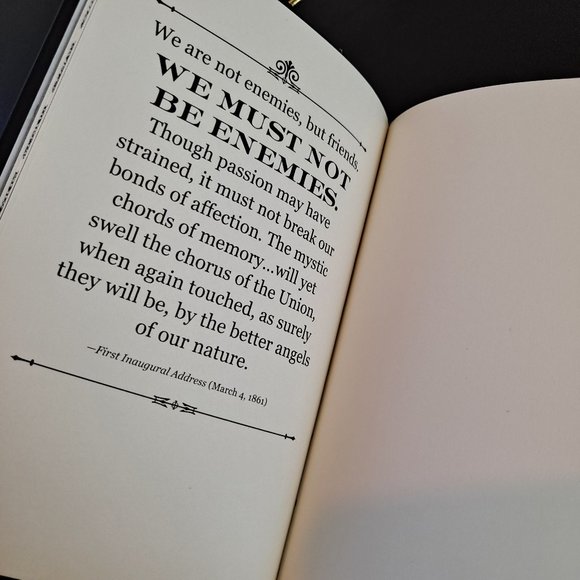 We are not enemies, but friends.
WE MUST NOT
BE ENEMIES.
Though passion may have
strained, it must not break our
bonds of affection. The mystic
chords of memory...will yet
swell the chorus of the Union,
when again touched, as surely
they will be, by the better angels
of our nature.
—First Inaugural Address (March 4, 1861)